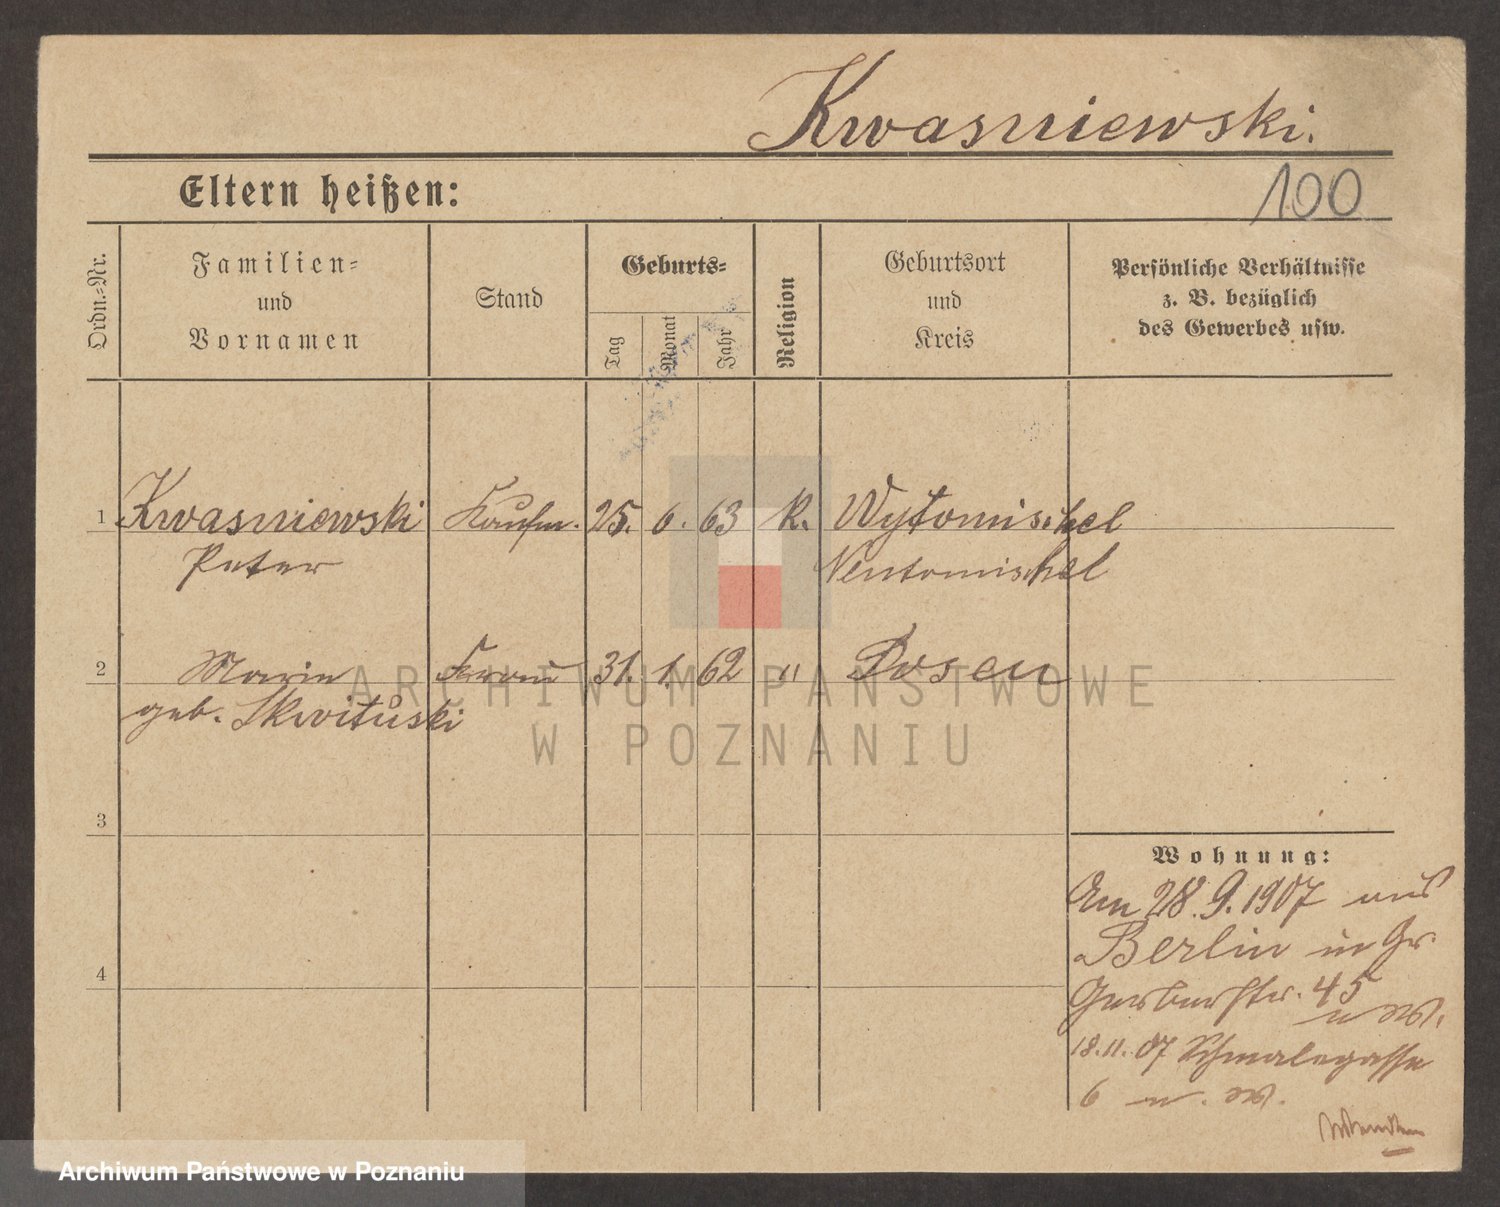 Kwasniewski.
Eltern heißen:
100
Ordn.-Nr.
Familien-
und
Vornamen
Stand
Geburts-
Tag
Monat
Jahr
Religion
Geburtsort
und
Kreis
Persönliche Verhältnisse
z. B. bezüglich
des Gewerbes usw.
1 Kwasniewski Kaufm. 25. 6. 63 K. Wytomischel
Peter Neutomischel
2 Maria Frau 31. 1. 62 " Posen
geb. Skwituski
3
4
Wohnung:
Am 28.9.1907 aus
Berlin in Gr.
Gerberstr. 45
18.11.07 Schmalegasse
6
ARCHIWUM PAŃSTWOWE
W POZNANIU
Archiwum Państwowe w Poznaniu